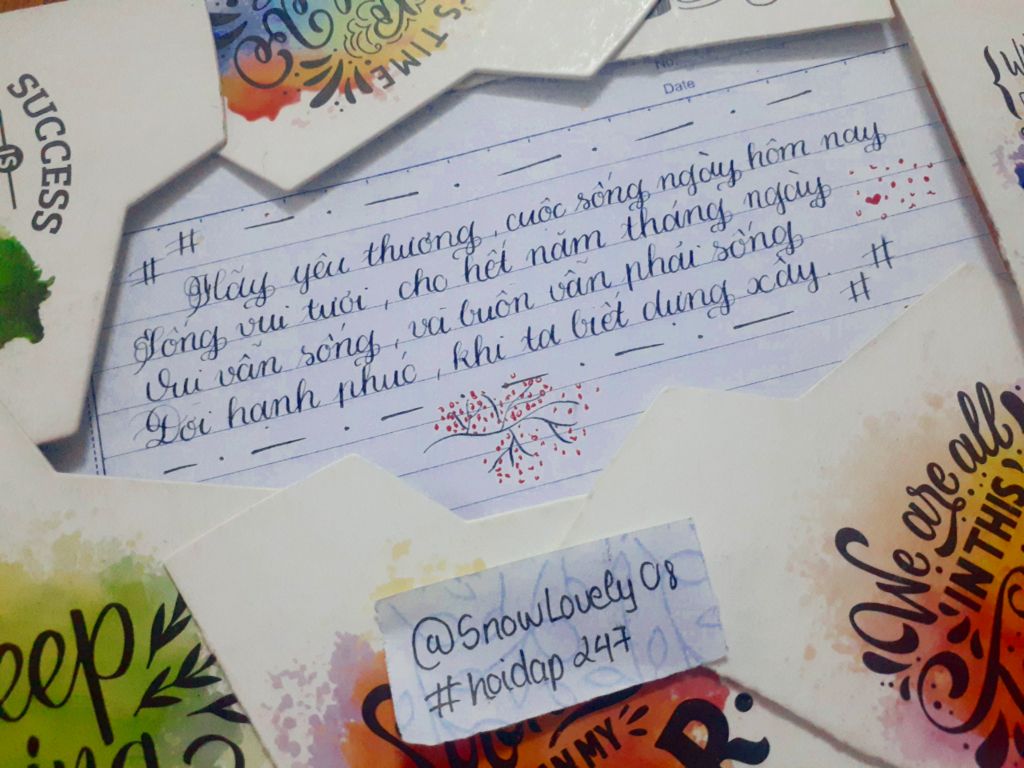 SUCCESS
IS
'S TIME
No.
Date
# #
Hãy yêu thương, cuộc sống ngày hôm nay
Sống vui tươi, cho hết năm tháng ngày
Vui vẫn sống, và buồn vẫn phải sống
Đời hạnh phúc, khi ta biết dựng xây. # #
We are all
IN THIS
eep
ing
IN MY
R.
@SnowLovely08
#hoidap247